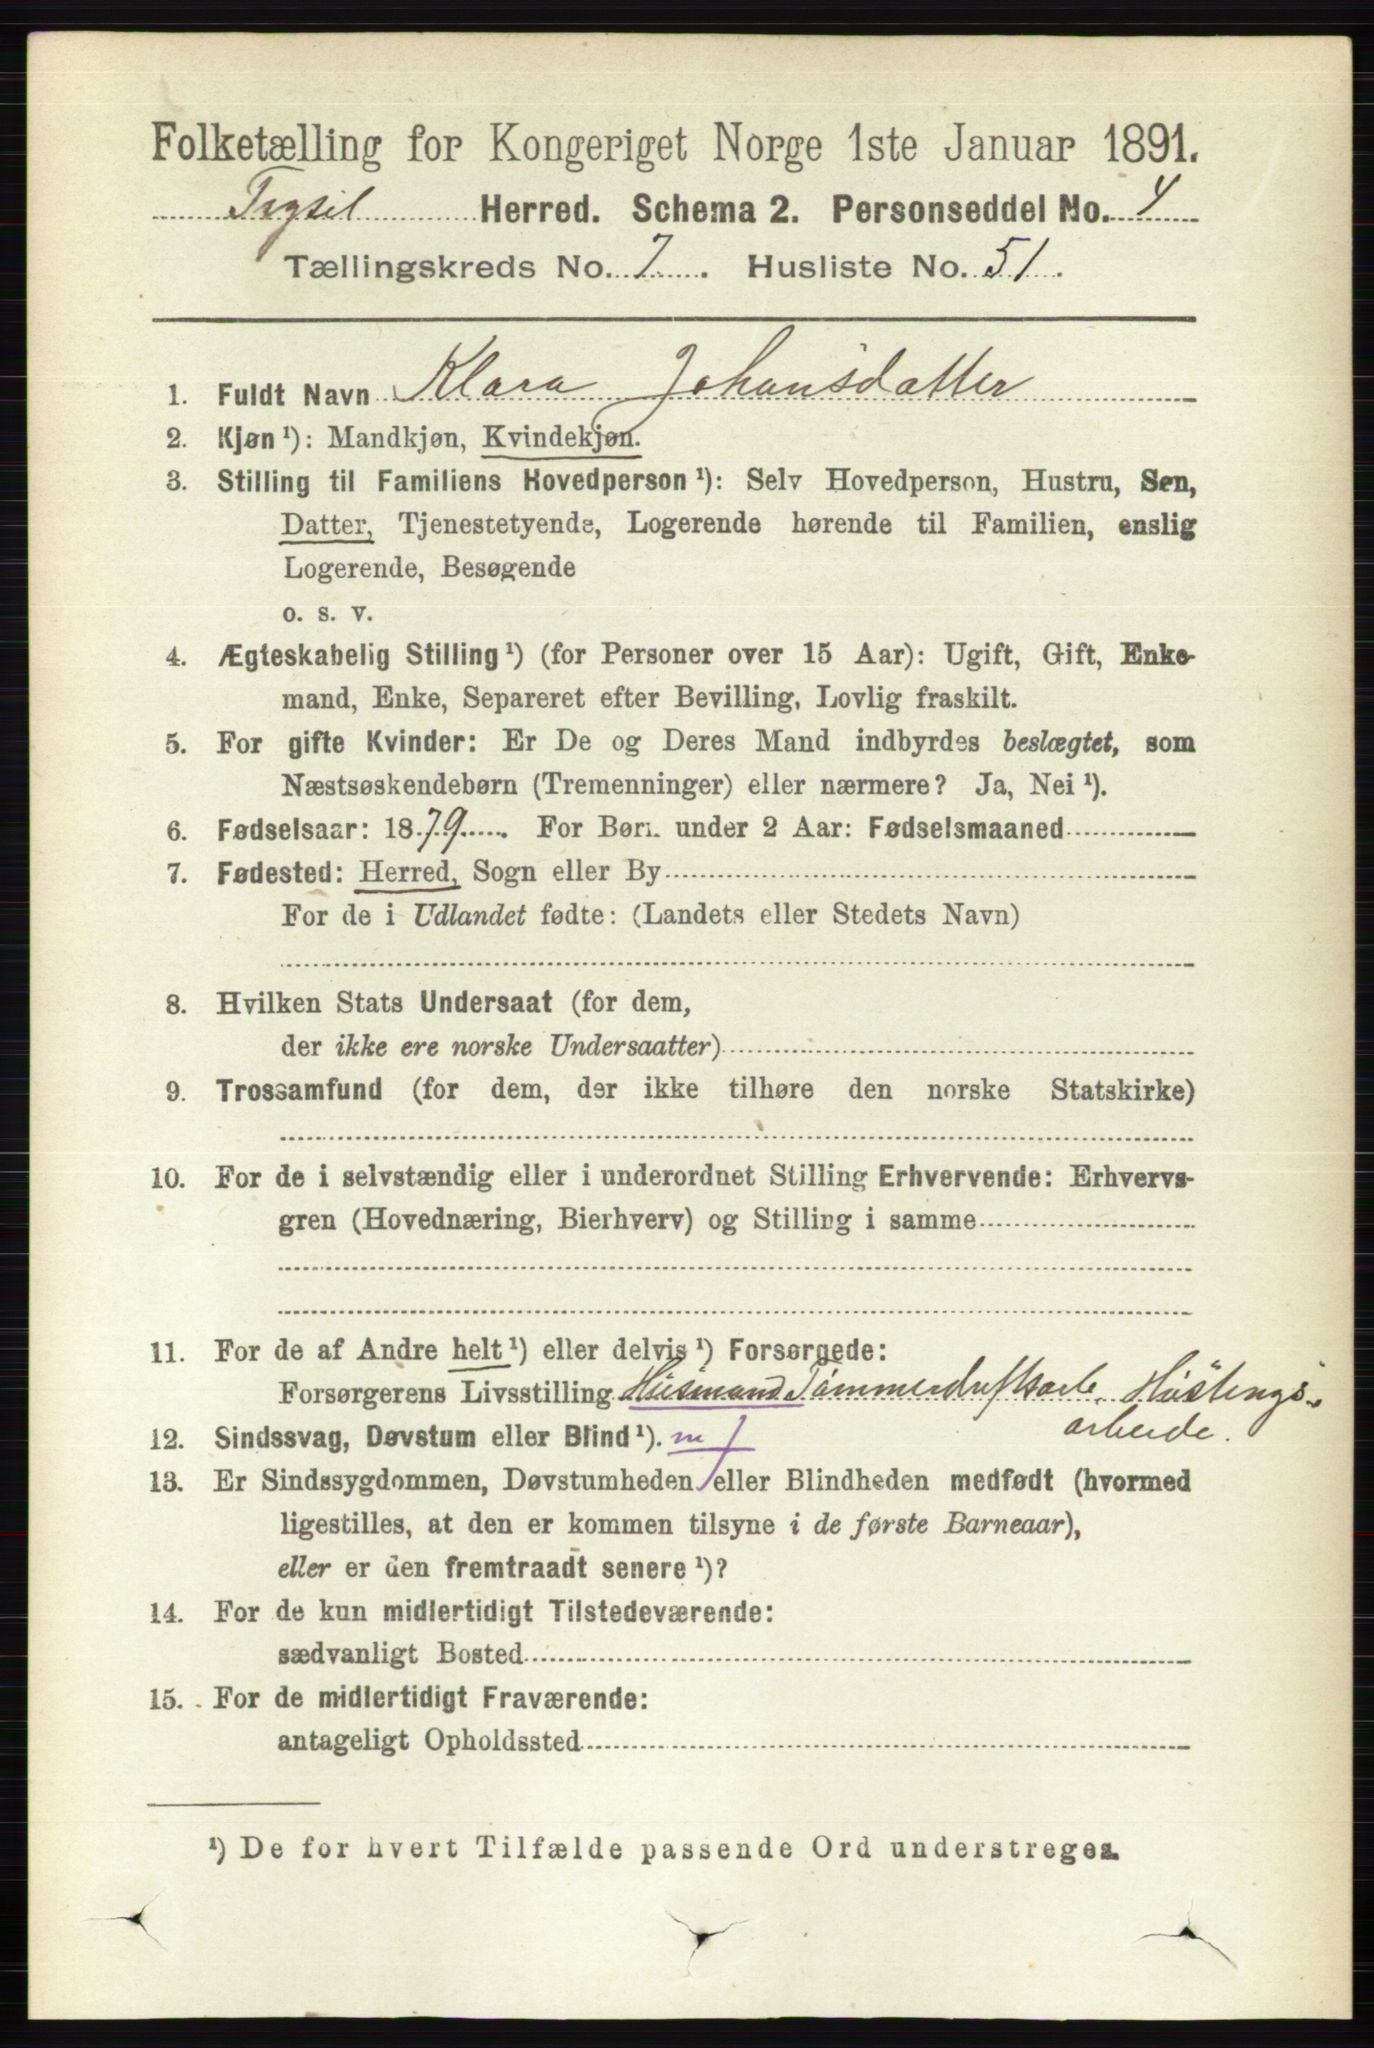 Folketælling for Kongeriget Norge 1ste Januar 1891.
Trysil Herred. Schema 2. Personseddel No. 4
Tællingskreds No. 7. Husliste No. 51.
1. Fuldt Navn Klara Johansdatter
2. Kjøn¹): Mandkjøn, Kvindekjøn.
3. Stilling til Familiens Hovedperson¹): Selv Hovedperson, Hustru, Søn,
Datter, Tjenestetyende, Logerende hørende til Familien, enslig
Logerende, Besøgende
o. s. v.
4. Ægteskabelig Stilling¹) (for Personer over 15 Aar): Ugift, Gift, Enke-
mand, Enke, Separeret efter Bevilling, Lovlig fraskilt.
5. For gifte Kvinder: Er De og Deres Mand indbyrdes beslægtet, som
Næstsøskendebørn (Tremenninger) eller nærmere? Ja, Nei¹).
6. Fødselsaar: 1879. For Børn under 2 Aar: Fødselsmaaned
7. Fødested: Herred, Sogn eller By
For de i Udlandet fødte: (Landets eller Stedets Navn)
8. Hvilken Stats Undersaat (for dem,
der ikke ere norske Undersaatter)
9. Trossamfund (for dem, der ikke tilhøre den norske Statskirke)
10. For de i selvstændig eller i underordnet Stilling Erhvervende: Erhvervs-
gren (Hovednæring, Bierhverv) og Stilling i samme
11. For de af Andre helt¹) eller delvis¹) Forsørgede:
Forsørgerens Livsstilling Husmand Tømmerdriftsarb. Høstings-
arbeide.
12. Sindssvag, Døvstum eller Blind¹).
13. Er Sindssygdommen, Døvstumheden eller Blindheden medfødt (hvormed
ligestilles, at den er kommen tilsyne i de første Barneaar),
eller er den fremtraadt senere¹)?
14. For de kun midlertidigt Tilstedeværende:
sædvanligt Bosted
15. For de midlertidigt Fraværende:
antageligt Opholdssted
¹) De for hvert Tilfælde passende Ord understreges.